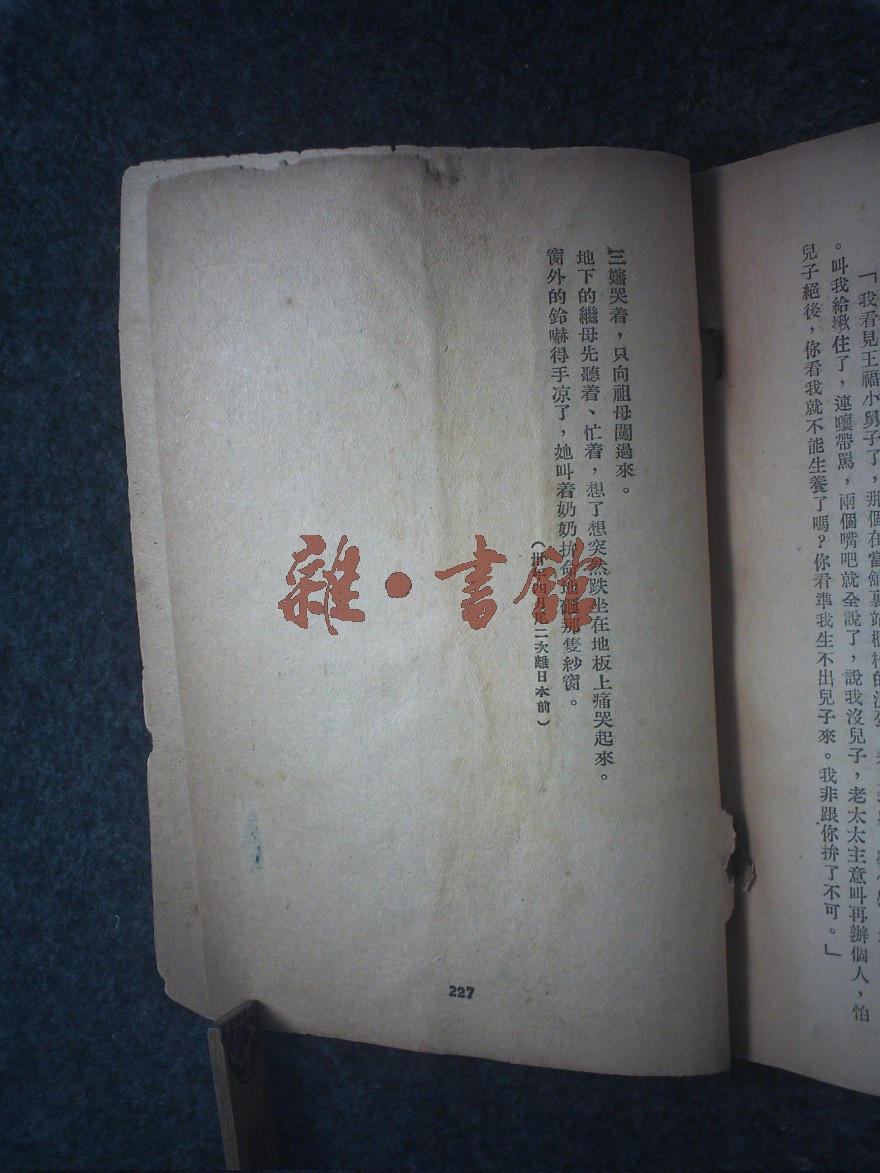 「我看見王福小舅子了，那個在當舖裏站櫃
。叫我給揪住了，連嚷帶罵，兩個嘴吧就全說了，說我沒兒子，老太太主意叫再辦個人，怕
兒子絕後，你看我就不能生養了嗎？你看準我生不出兒子來。我非跟你拚了不可。」
三嬸哭着，只向祖母闖過來。
地下的繼母先聽着、忙着，想了想突然跌坐在地板上痛哭起來。
窗外的鈴嚇得手凉了，她叫着奶奶抗命地砸那隻紗窗。
（卅年四月廿二次離日本前）
227
雜·書館